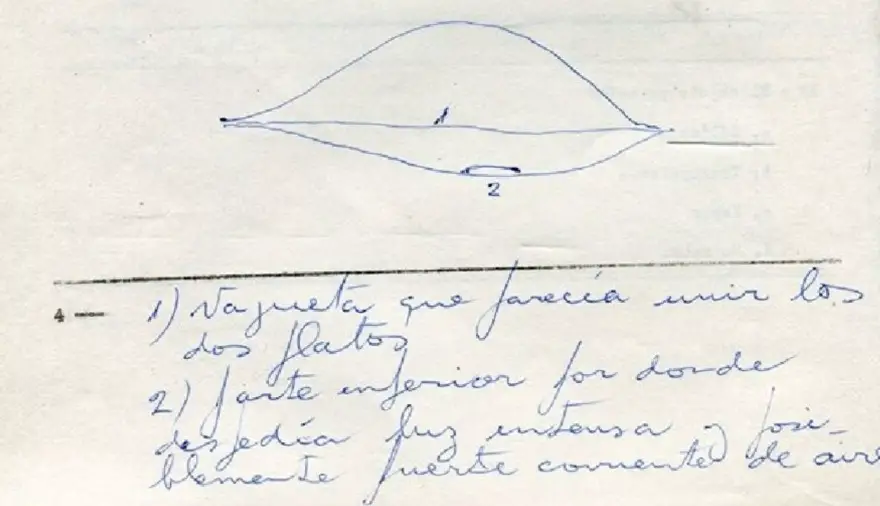 1
2
4 — 1) Vagueta que parecía unir los
dos platos
2) parte inferior por donde
despedía luz intensa y posi-
blemente fuerte corriente de aire